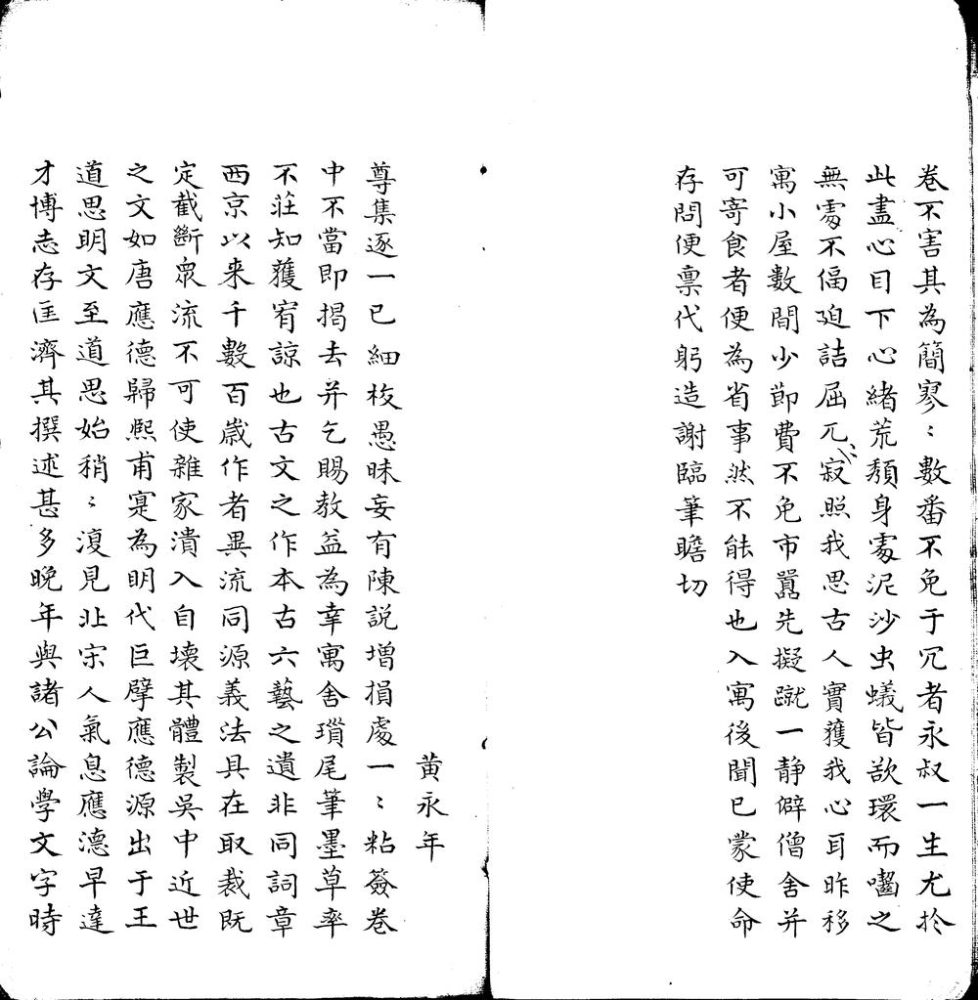 卷不害其為簡寥〻數番不免于冗者永叔一生尤於
此盡心目下心緒荒頹身處泥沙虫蟻皆欲環而嚙之
無處不偪迫詰屈兀〻寂照我思古人實獲我心耳昨移
寓小屋數間少節費不免市囂先擬蹴一静僻僧舍并
可寄食者便為省事然不能得也入寓後聞已蒙使命
存問便禀代躬造謝臨筆瞻切
黄永年
尊集逐一已細校愚昧妄有陳説增損處一〻粘簽卷
中不當即揭去并乞賜教益為幸寓舍瑣尾筆墨草率
不莊知獲宥諒也古文之作本古六藝之遺非同詞章
西京以来千數百歲作者異流同源義法具在取裁既
定截斷衆流不可使雜家潰入自壊其體製吳中近世
之文如唐應德歸熙甫寔為明代巨擘應德源出于王
道思明文至道思始稍〻復見北宋人氣息應德早達
才博志存匡濟其撰述甚多晚年與諸公論學文字時